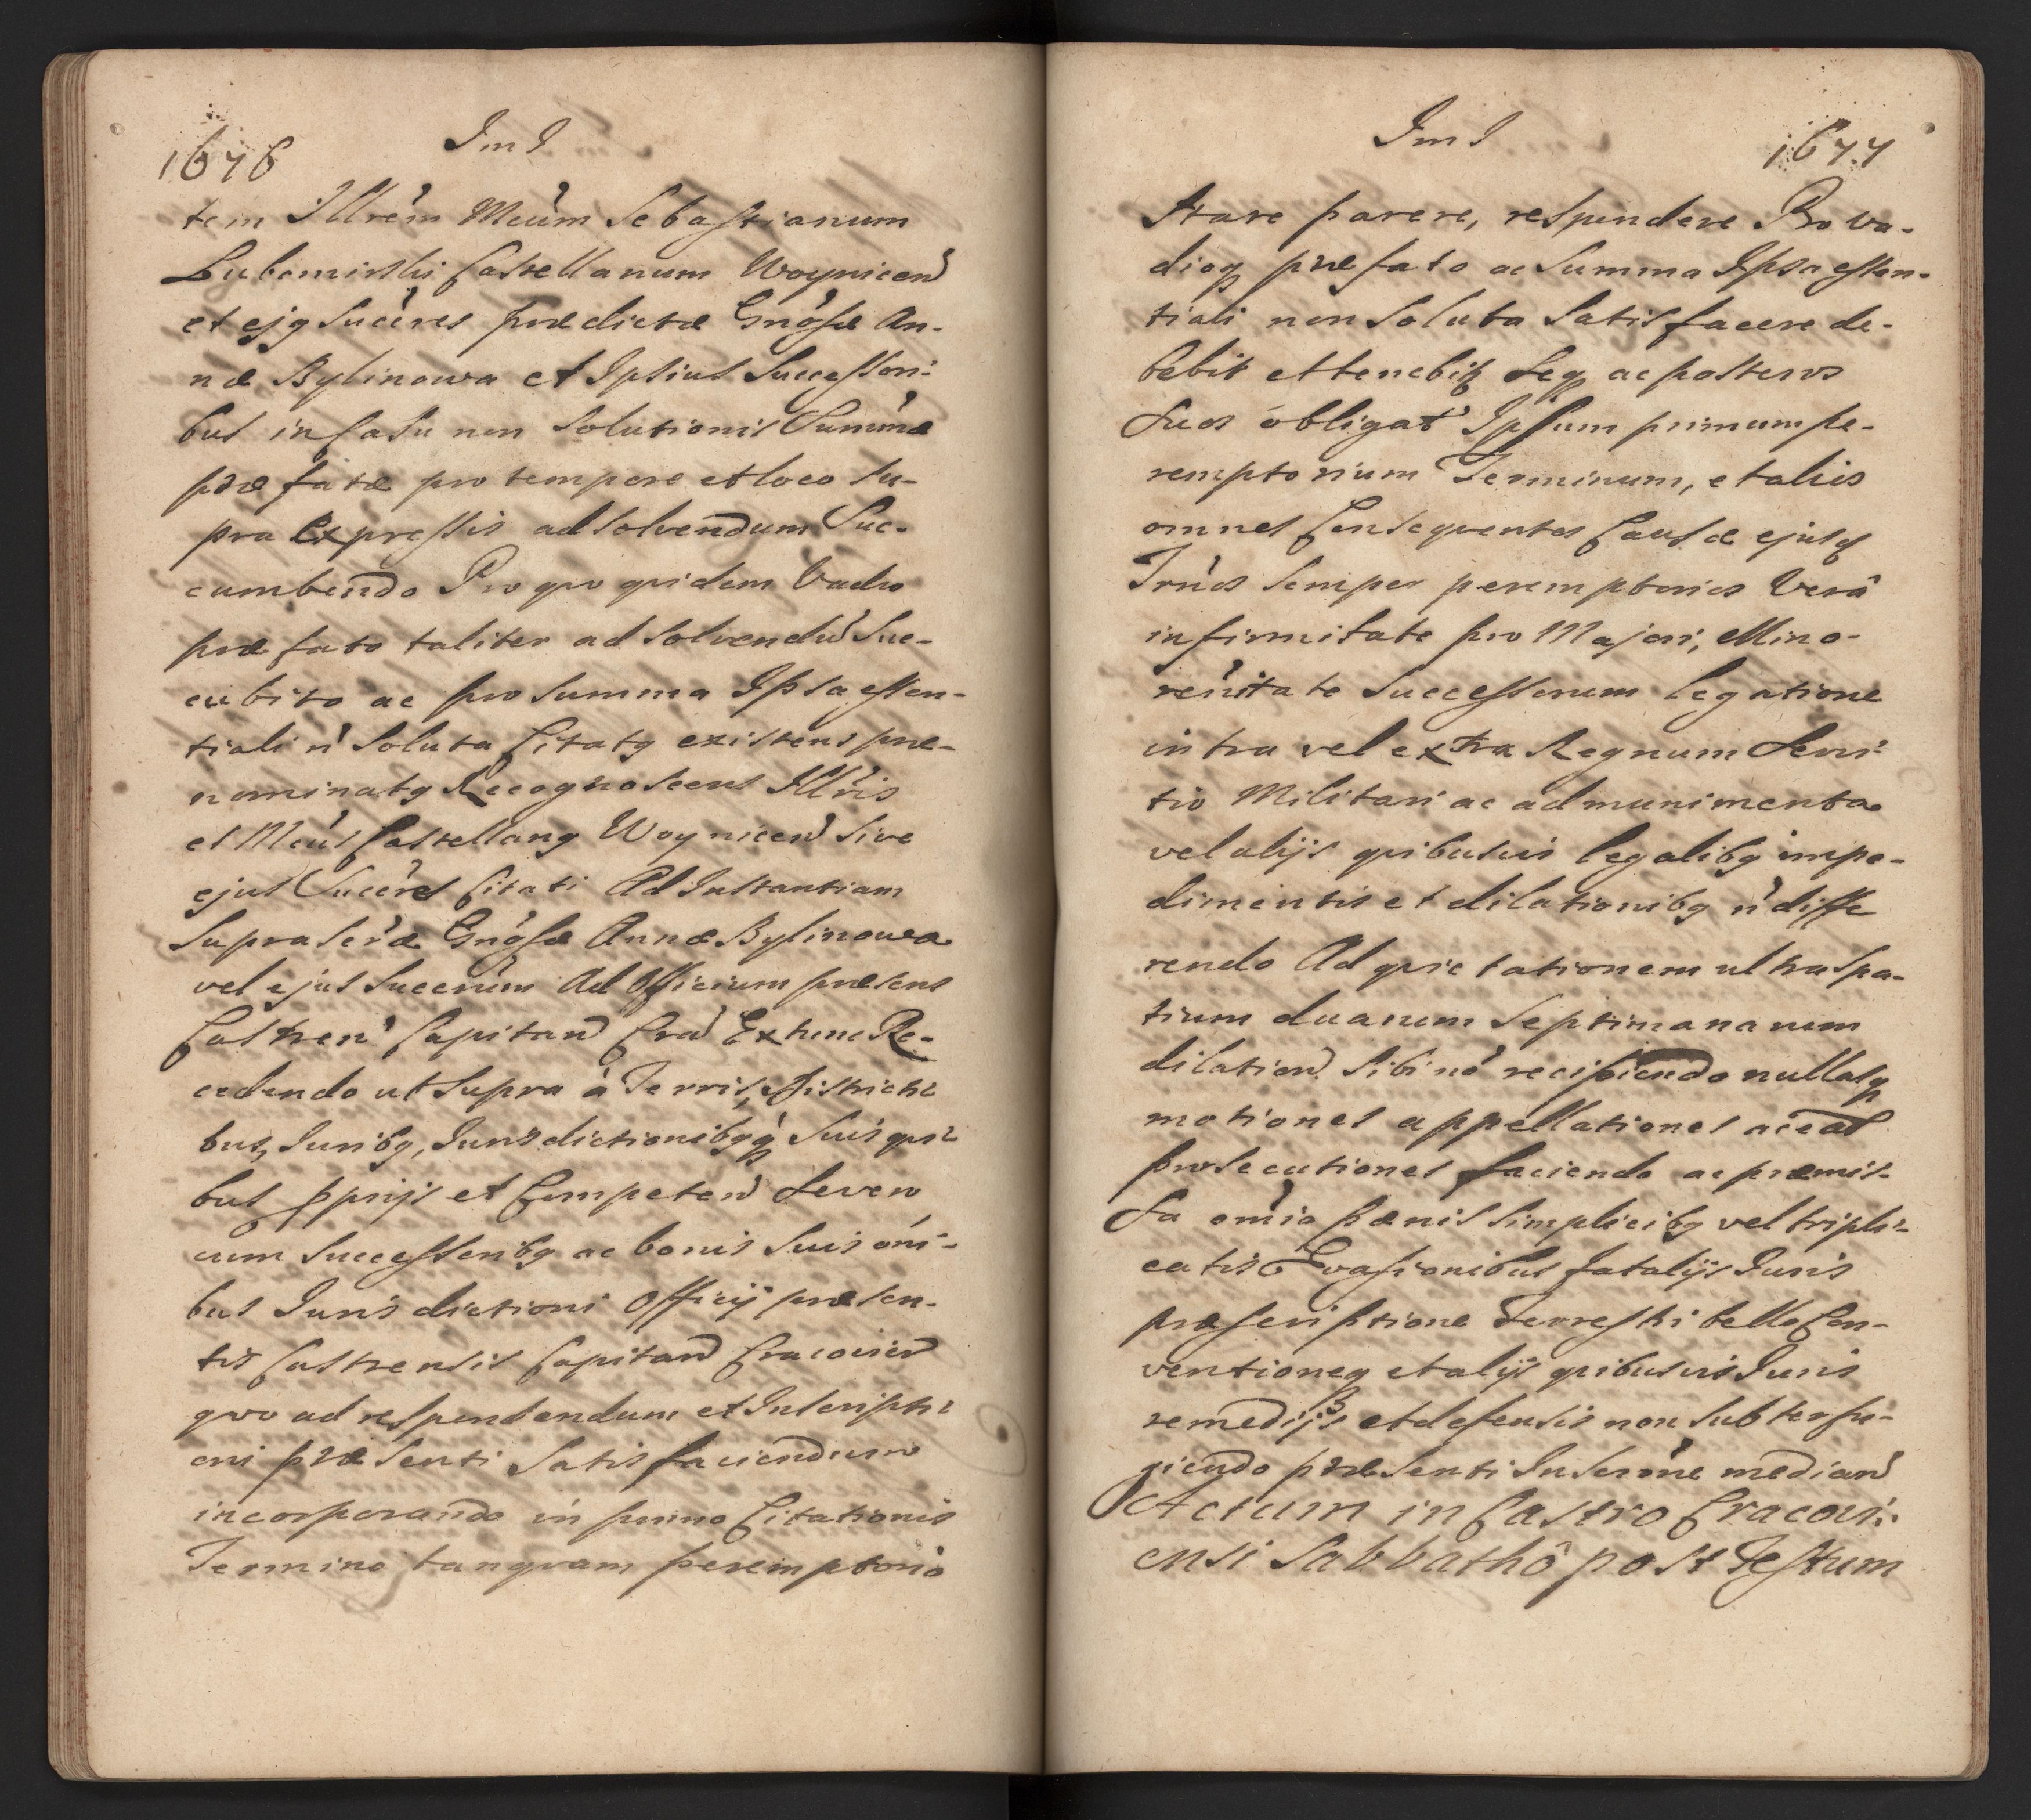 1676
Im I
tem Illrém Mcúm Sebastianum
Lubomirski Castellanum Woynicen
et ejq Succéres prædictæ Gnósæ An-
næ Bylinowa et Ipsius Successori-
bus in Casu non solutionis Summæ
præfatæ pro tempore et loco su-
pra expressis ad solvendum Suc-
cumbendo Pro quo quidem Vadio
præfato taliter ad solvendū Suc-
cubito ac pro summa Ipsa essen-
tiali ń soluta Citatq existens præ-
nominatq Recognoscens Illris
et Mcús Castellanq Woynicen sive
ejus Succéres Citati Ad Instantiam
supra scræ Gnósæ Annæ Bylinowa
vel ejus Succerum Ad Officium præsens
Castren Capitan Cra Extunc Re-
cedendo ut supra à Terris, Districti-
bus, Juribq, Jurisdictionibqq Suis qui-
bus pprijs et Competen Severo
cum Successoribq ac bonis suis ómi-
bus Jurisdictioni Officij præsen-
tis Castrensis Capitan Cracovien
quo ad respondendum et Inscripti-
oni præsenti Satisfaciendum
incorporando in primo Citationis
Termino tanquam peremptorio
Im I
1677
Stare parere, respondere Pro va-
dioq præfato ac Summa Ipsa essen-
tiali non soluta Satisfacere de-
bebit et tenebit Seq ac posteros
Suos obligat Ipsum primum pe-
remptorium Terminum, et alios
omnes Consequentes Causæ ejusq
Trnós semper peremptorios Verâ
infirmitate pro Majori, Mino-
renitate Successorum legatione
intra vel extra Regnum Servi-
tio Militari ac ad munimenta
vel alijs quibusvis legalibq impe-
dimentis et dilationibq ń diffe
rendo Ad quietationem ultra spa-
tium duarum Septimanarum
dilation sibi nó recipiendo nullasq
motiones appellationes aceas
prosecutiones faciendo ac præmis-
sa omia pænis simplicibq vel tripli-
catis Evasionibus fatalijs Juris
præscriptione Terrestri bello Con-
ventioneq et alijs quibusvis Juris
remedijs et defensis non subterfu-
giendo præsenti Inscróne median
Actum in Castro Cracovi-
ensi Sabbathô post Festum